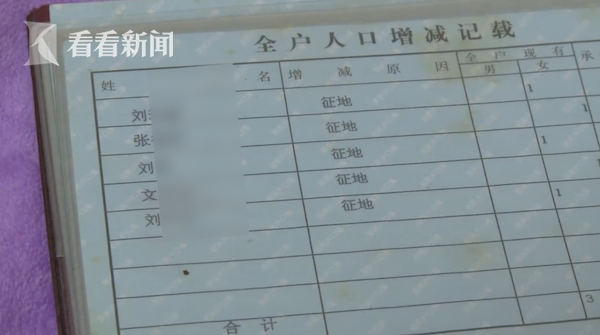 看看新闻
全户人口增减记载
姓 名 增 减 原 因 全 户 现 有 承
男 女
刘 征地 1
张 征地 1
刘 征地 1
文 征地
刘 征地 1
合 计 3